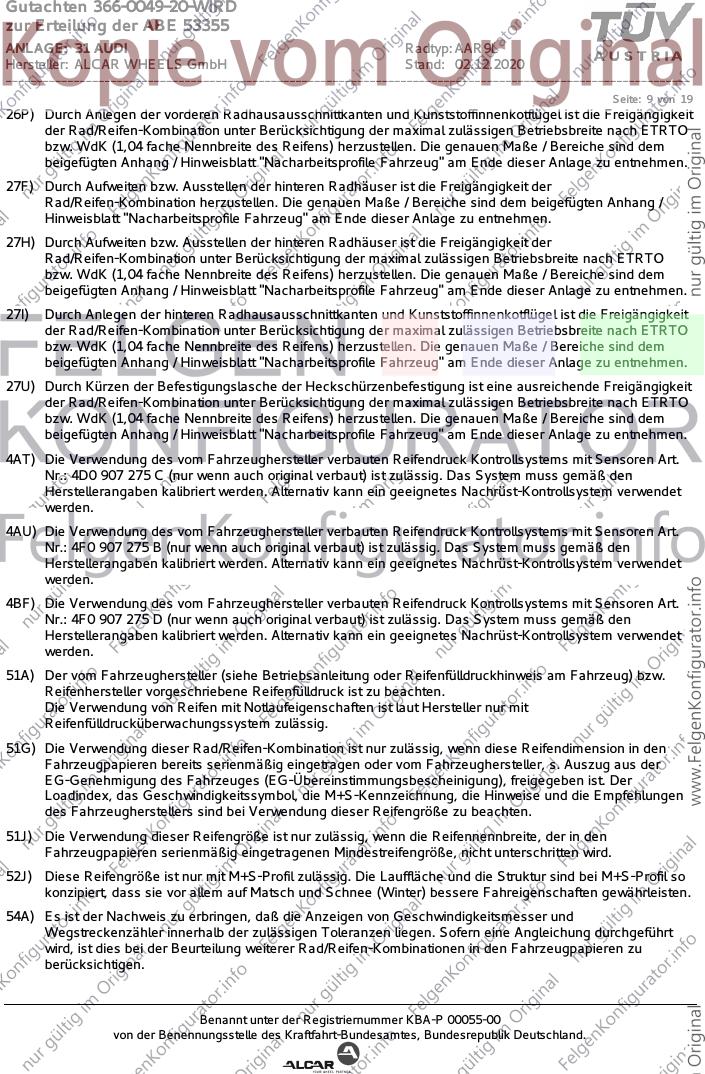 Gutachten 366-0049-20-WIRD
zur Erteilung der ABE 53355
ANLAGE: 31 AUDI
Hersteller: ALCAR WHEELS GmbH
Radtyp: AAR9L
Stand: 02.12.2020
TÜV
AUSTRIA
Kopie vom Original
Seite: 9 von 19
26P) Durch Anlegen der vorderen Radhausausschnittkanten und Kunststoffinnenkotflügel ist die Freigängigkeit
der Rad/Reifen-Kombination unter Berücksichtigung der maximal zulässigen Betriebsbreite nach ETRTO
bzw. WdK (1,04 fache Nennbreite des Reifens) herzustellen. Die genauen Maße / Bereiche sind dem
beigefügten Anhang / Hinweisblatt "Nacharbeitsprofile Fahrzeug" am Ende dieser Anlage zu entnehmen.
27F) Durch Aufweiten bzw. Ausstellen der hinteren Radhäuser ist die Freigängigkeit der
Rad/Reifen-Kombination herzustellen. Die genauen Maße / Bereiche sind dem beigefügten Anhang /
Hinweisblatt "Nacharbeitsprofile Fahrzeug" am Ende dieser Anlage zu entnehmen.
27H) Durch Aufweiten bzw. Ausstellen der hinteren Radhäuser ist die Freigängigkeit der
Rad/Reifen-Kombination unter Berücksichtigung der maximal zulässigen Betriebsbreite nach ETRTO
bzw. WdK (1,04 fache Nennbreite des Reifens) herzustellen. Die genauen Maße / Bereiche sind dem
beigefügten Anhang / Hinweisblatt "Nacharbeitsprofile Fahrzeug" am Ende dieser Anlage zu entnehmen.
27I) Durch Anlegen der hinteren Radhausausschnittkanten und Kunststoffinnenkotflügel ist die Freigängigkeit
der Rad/Reifen-Kombination unter Berücksichtigung der maximal zulässigen Betriebsbreite nach ETRTO
bzw. WdK (1,04 fache Nennbreite des Reifens) herzustellen. Die genauen Maße / Bereiche sind dem
beigefügten Anhang / Hinweisblatt "Nacharbeitsprofile Fahrzeug" am Ende dieser Anlage zu entnehmen.
FELGEN
27U) Durch Kürzen der Befestigungslasche der Heckschürzenbefestigung ist eine ausreichende Freigängigkeit
der Rad/Reifen-Kombination unter Berücksichtigung der maximal zulässigen Betriebsbreite nach ETRTO
bzw. WdK (1,04 fache Nennbreite des Reifens) herzustellen. Die genauen Maße / Bereiche sind dem
beigefügten Anhang / Hinweisblatt "Nacharbeitsprofile Fahrzeug" am Ende dieser Anlage zu entnehmen.
KONFIGURATOR
4AT) Die Verwendung des vom Fahrzeughersteller verbauten Reifendruck Kontrollsystems mit Sensoren Art.
Nr.: 4D0 907 275 C (nur wenn auch original verbaut) ist zulässig. Das System muss gemäß den
Herstellerangaben kalibriert werden. Alternativ kann ein geeignetes Nachrüst-Kontrollsystem verwendet
werden.
4AU) Die Verwendung des vom Fahrzeughersteller verbauten Reifendruck Kontrollsystems mit Sensoren Art.
Nr.: 4F0 907 275 B (nur wenn auch original verbaut) ist zulässig. Das System muss gemäß den
Herstellerangaben kalibriert werden. Alternativ kann ein geeignetes Nachrüst-Kontrollsystem verwendet
werden.
FelgenKonfigurator.info
4BF) Die Verwendung des vom Fahrzeughersteller verbauten Reifendruck Kontrollsystems mit Sensoren Art.
Nr.: 4F0 907 275 D (nur wenn auch original verbaut) ist zulässig. Das System muss gemäß den
Herstellerangaben kalibriert werden. Alternativ kann ein geeignetes Nachrüst-Kontrollsystem verwendet
werden.
51A) Der vom Fahrzeughersteller (siehe Betriebsanleitung oder Reifenfülldruckhinweis am Fahrzeug) bzw.
Reifenhersteller vorgeschriebene Reifenfülldruck ist zu beachten.
Die Verwendung von Reifen mit Notlaufeigenschaften ist laut Hersteller nur mit
Reifenfülldrucküberwachungssystem zulässig.
51G) Die Verwendung dieser Rad/Reifen-Kombination ist nur zulässig, wenn diese Reifendimension in den
Fahrzeugpapieren bereits serienmäßig eingetragen oder vom Fahrzeughersteller, s. Auszug aus der
EG-Genehmigung des Fahrzeuges (EG-Übereinstimmungsbescheinigung), freigegeben ist. Der
Loadindex, das Geschwindigkeitssymbol, die M+S-Kennzeichnung, die Hinweise und die Empfehlungen
des Fahrzeugherstellers sind bei Verwendung dieser Reifengröße zu beachten.
51J) Die Verwendung dieser Reifengröße ist nur zulässig, wenn die Reifennennbreite, der in den
Fahrzeugpapieren serienmäßig eingetragenen Mindestreifengröße, nicht unterschritten wird.
52J) Diese Reifengröße ist nur mit M+S-Profil zulässig. Die Lauffläche und die Struktur sind bei M+S-Profil so
konzipiert, dass sie vor allem auf Matsch und Schnee (Winter) bessere Fahreigenschaften gewährleisten.
54A) Es ist der Nachweis zu erbringen, daß die Anzeigen von Geschwindigkeitsmesser und
Wegstreckenzähler innerhalb der zulässigen Toleranzen liegen. Sofern eine Angleichung durchgeführt
wird, ist dies bei der Beurteilung weiterer Rad/Reifen-Kombinationen in den Fahrzeugpapieren zu
berücksichtigen.
nur gültig im Original
www.FelgenKonfigurator.info
Benannt unter der Registriernummer KBA-P 00055-00
von der Benennungsstelle des Kraftfahrt-Bundesamtes, Bundesrepublik Deutschland.
ALCAR